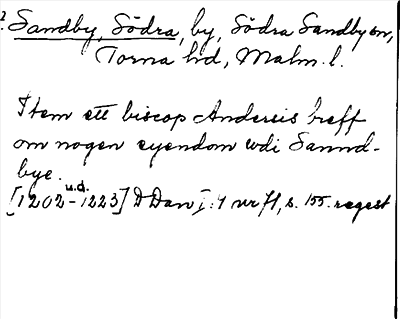 Sandby, Södra, by, Södra Sandby sn,
Torna hd, Malm. l.
Item ett biscop Andersis breff
om nogen eyendom wdi Sannd-
bye.
[1202 - u.d. 1223] D Dan I:4 nr 71, s. 155. regest